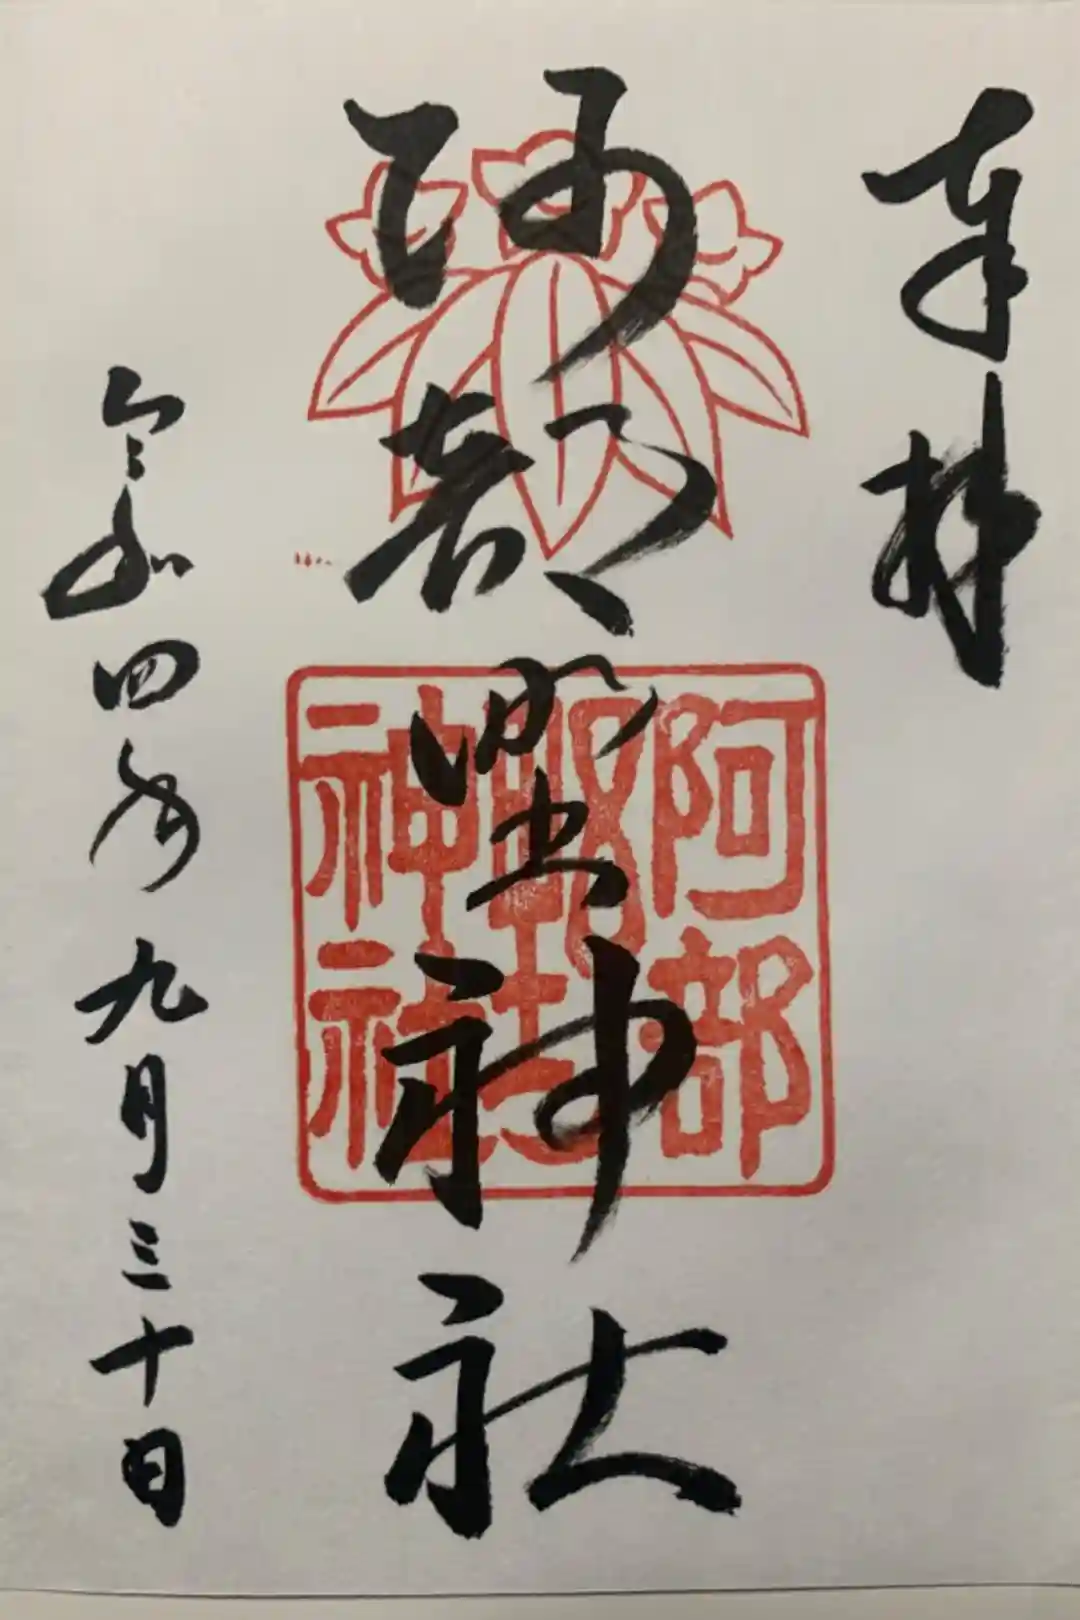 奉拝
阿部野神社
令和四年九月三十日
阿部
野
神社